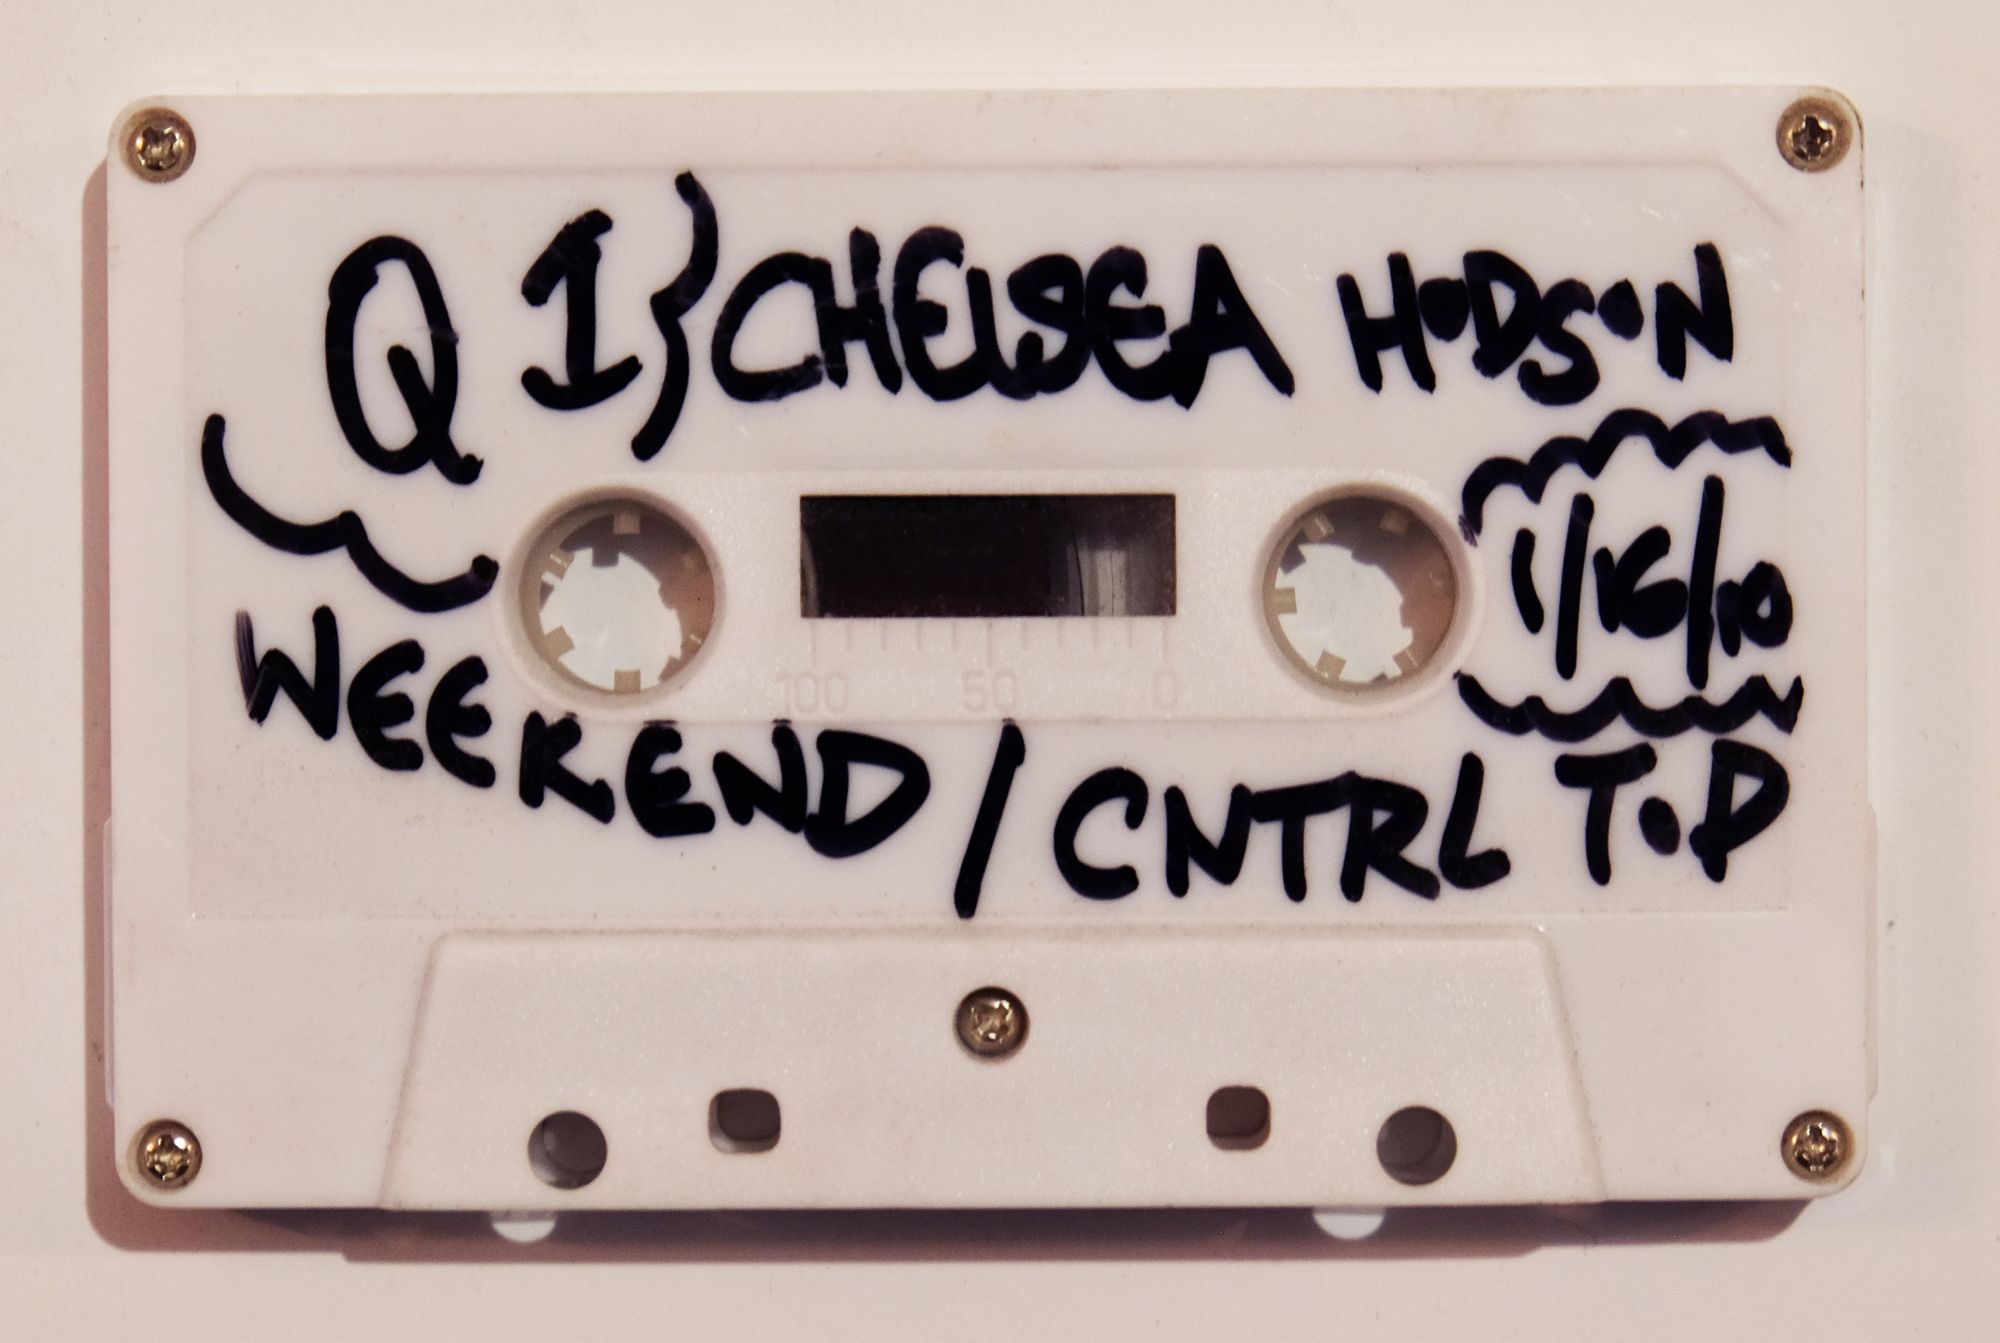 Q I} CHELSEA HODSON
1/16/10
100 50 0
WEEKEND / CNTRL T.D